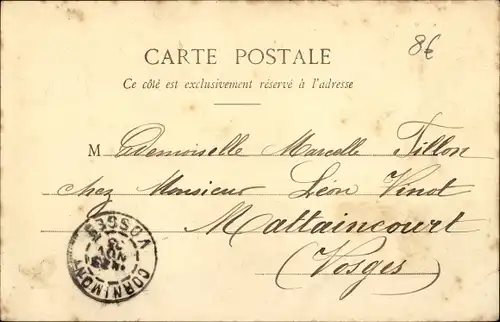 8€
CARTE POSTALE
Ce côté est exclusivement réservé à l'adresse
Mademoiselle Marcelle Tillon
chez Monsieur Léon Vinot
Mattaincourt
(Vosges)
CORNIMONT
VOSGES